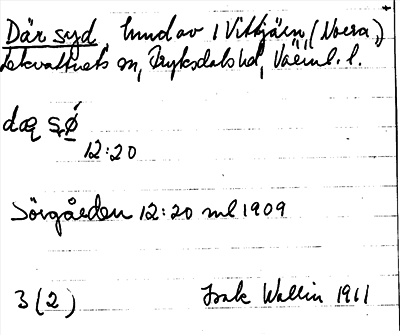 Där syd hmd av i Vittjärn, (Norra,)
Lekvattnets sn, Fryksdals hd, Värml. l.
dæ sǿ̱
12:20
Sörgården 12:20 ml 1909
3 (2) Isak Wallin 1911